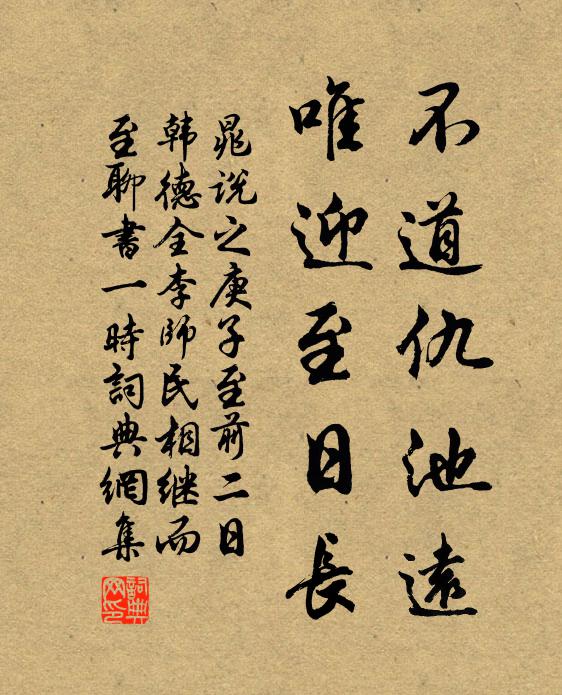 不道仇池遠
唯迎至日長
晁說之庚子至前二日
韩德全李師民相继而
至聊書一時詞典網集
詞典网印